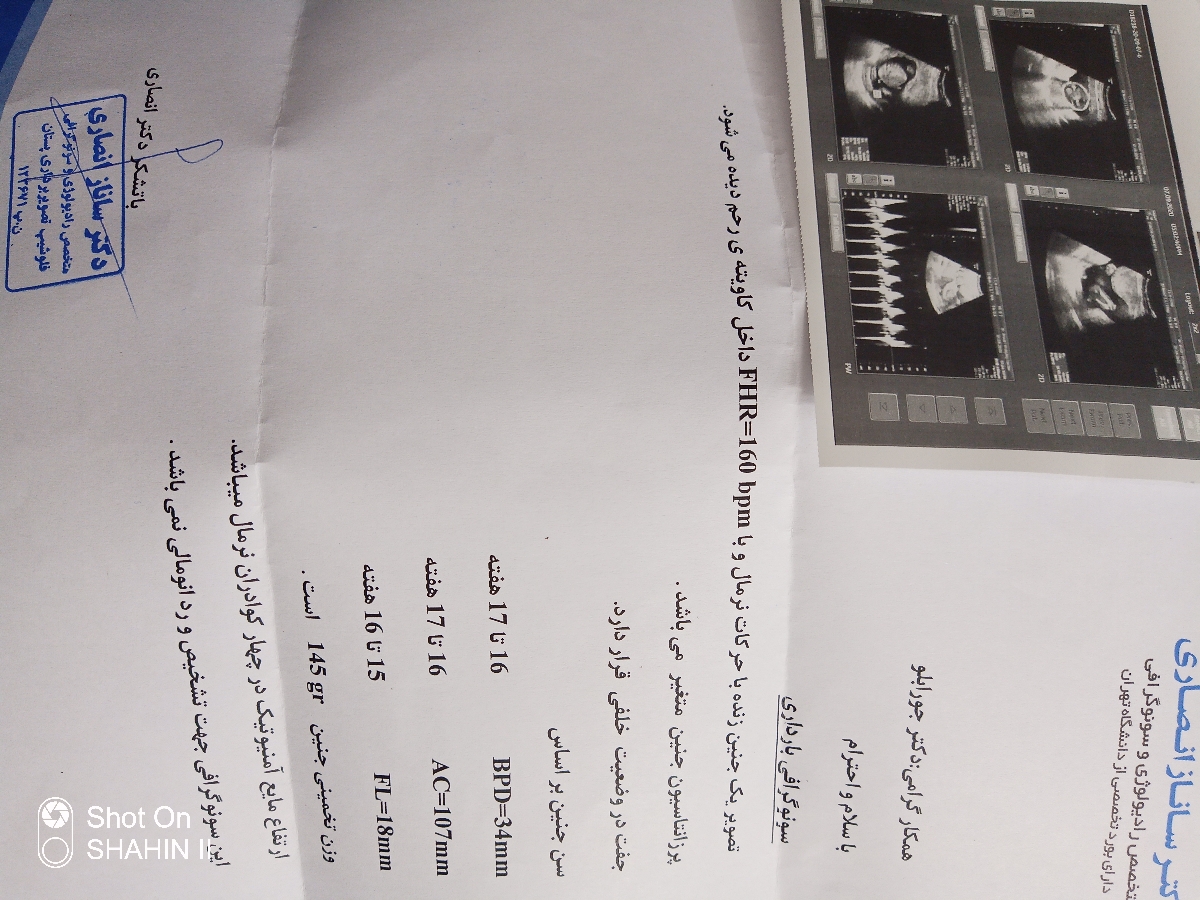 دکتر ساناز انصاری
متخصص رادیولوژی و سونوگرافی
دارای بورد تخصصی از دانشگاه تهران
همکار گرامی:دکتر جورابلو
با سلام و احترام
سونوگرافی بارداری
تصویر یک جنین زنده با حرکات نرمال و با FHR=160 bpm داخل کاویته ی رحم دیده می شود.
پرزانتاسیون جنین متغیر می باشد .
جفت در وضعیت خلفی قرار دارد.
سن جنین بر اساس
BPD=34mm 16 تا 17 هفته
AC=107mm 16 تا 17 هفته
FL=18mm 15 تا 16 هفته
وزن تخمینی جنین 145 gr است .
ارتفاع مایع آمنیوتیک در چهار کوادران نرمال میباشد.
این سونوگرافی جهت تشخیص و رد انومالی نمی باشد .
باتشکر دکتر انصاری
دکتر ساناز انصاری
متخصص رادیولوژی و سونوگرافی
فلوشیپ تصویربرداری پستان
07/09/2020
2D
2D
2D
PW
Shot On
SHAHIN II